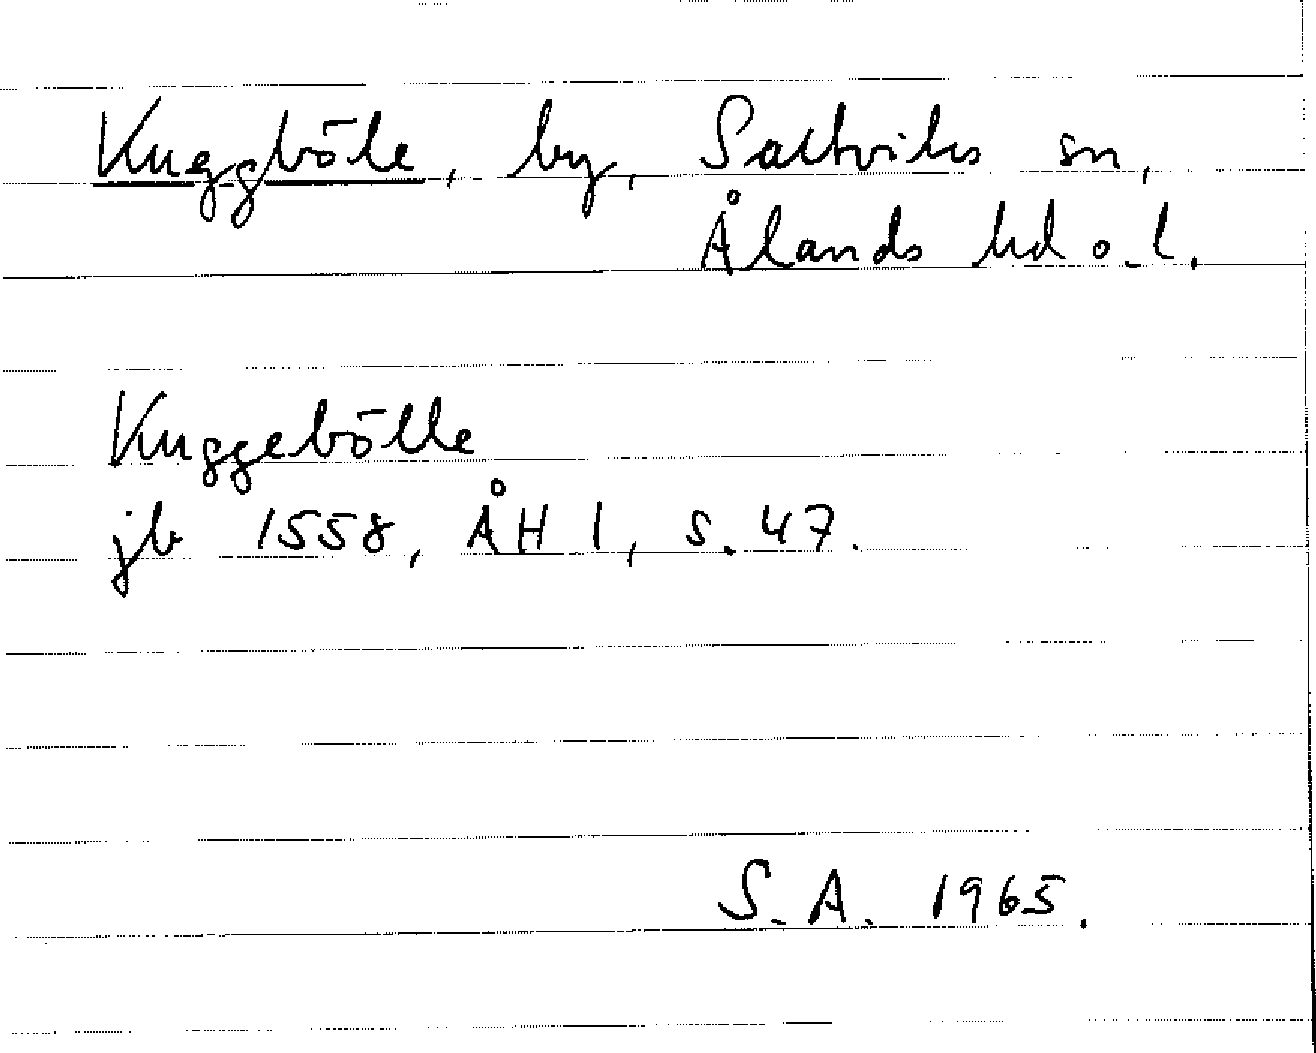 Kuggböle, by, Saltviks sn,
Ålands hd o. l.
Kuggebölle
jb 1558, ÅH I, s. 47.
S. A. 1965.